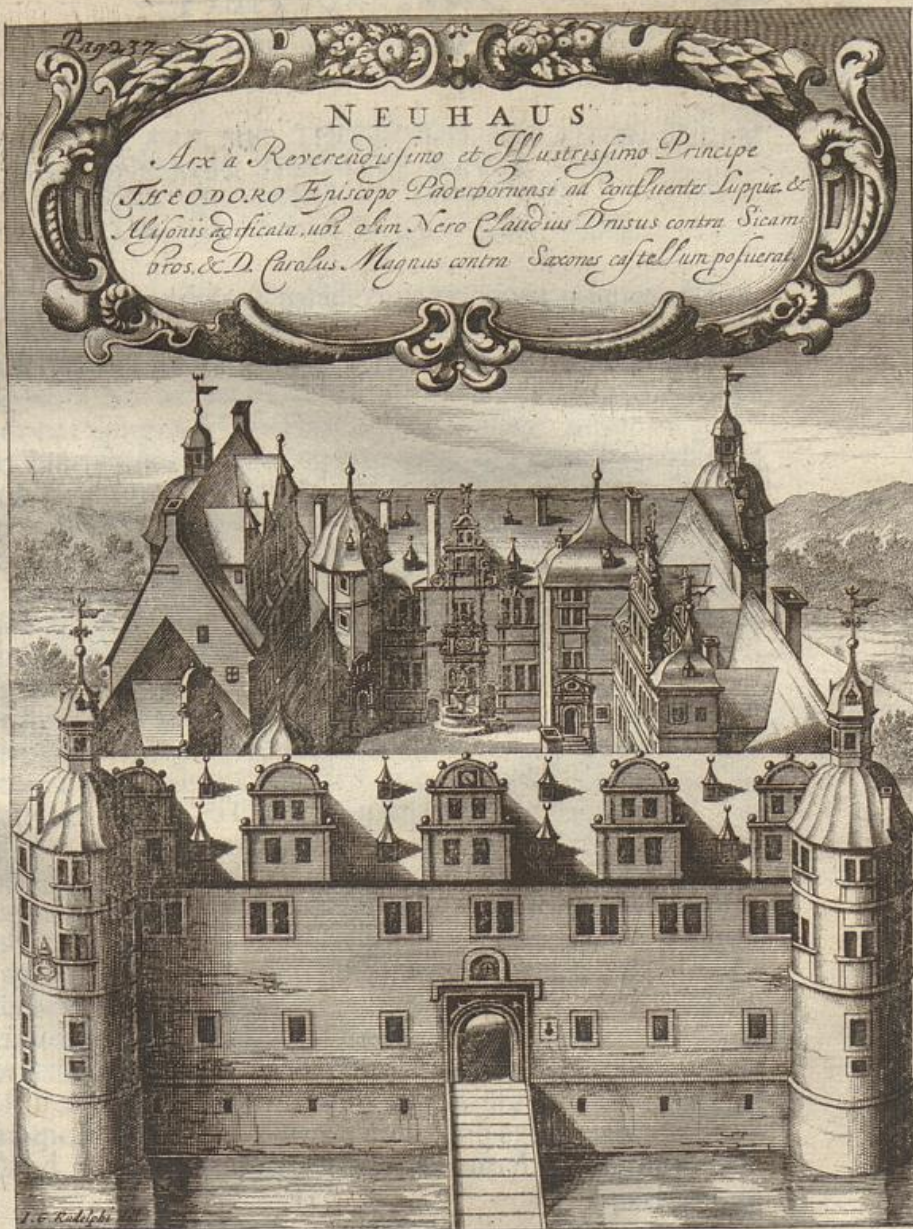 Pag 237
NEUHAUS
Arx à Reverendissimo et Illustrissimo Principe
THEODORO Episcopo Paderbornensi ad confluentes Luppiæ &
Alisonis ædificata, ubi olim Nero Claudius Drusus contra Sicam
bros, & D. Carolus Magnus contra Saxones castellum posuerat.
I. G. Rudolphi